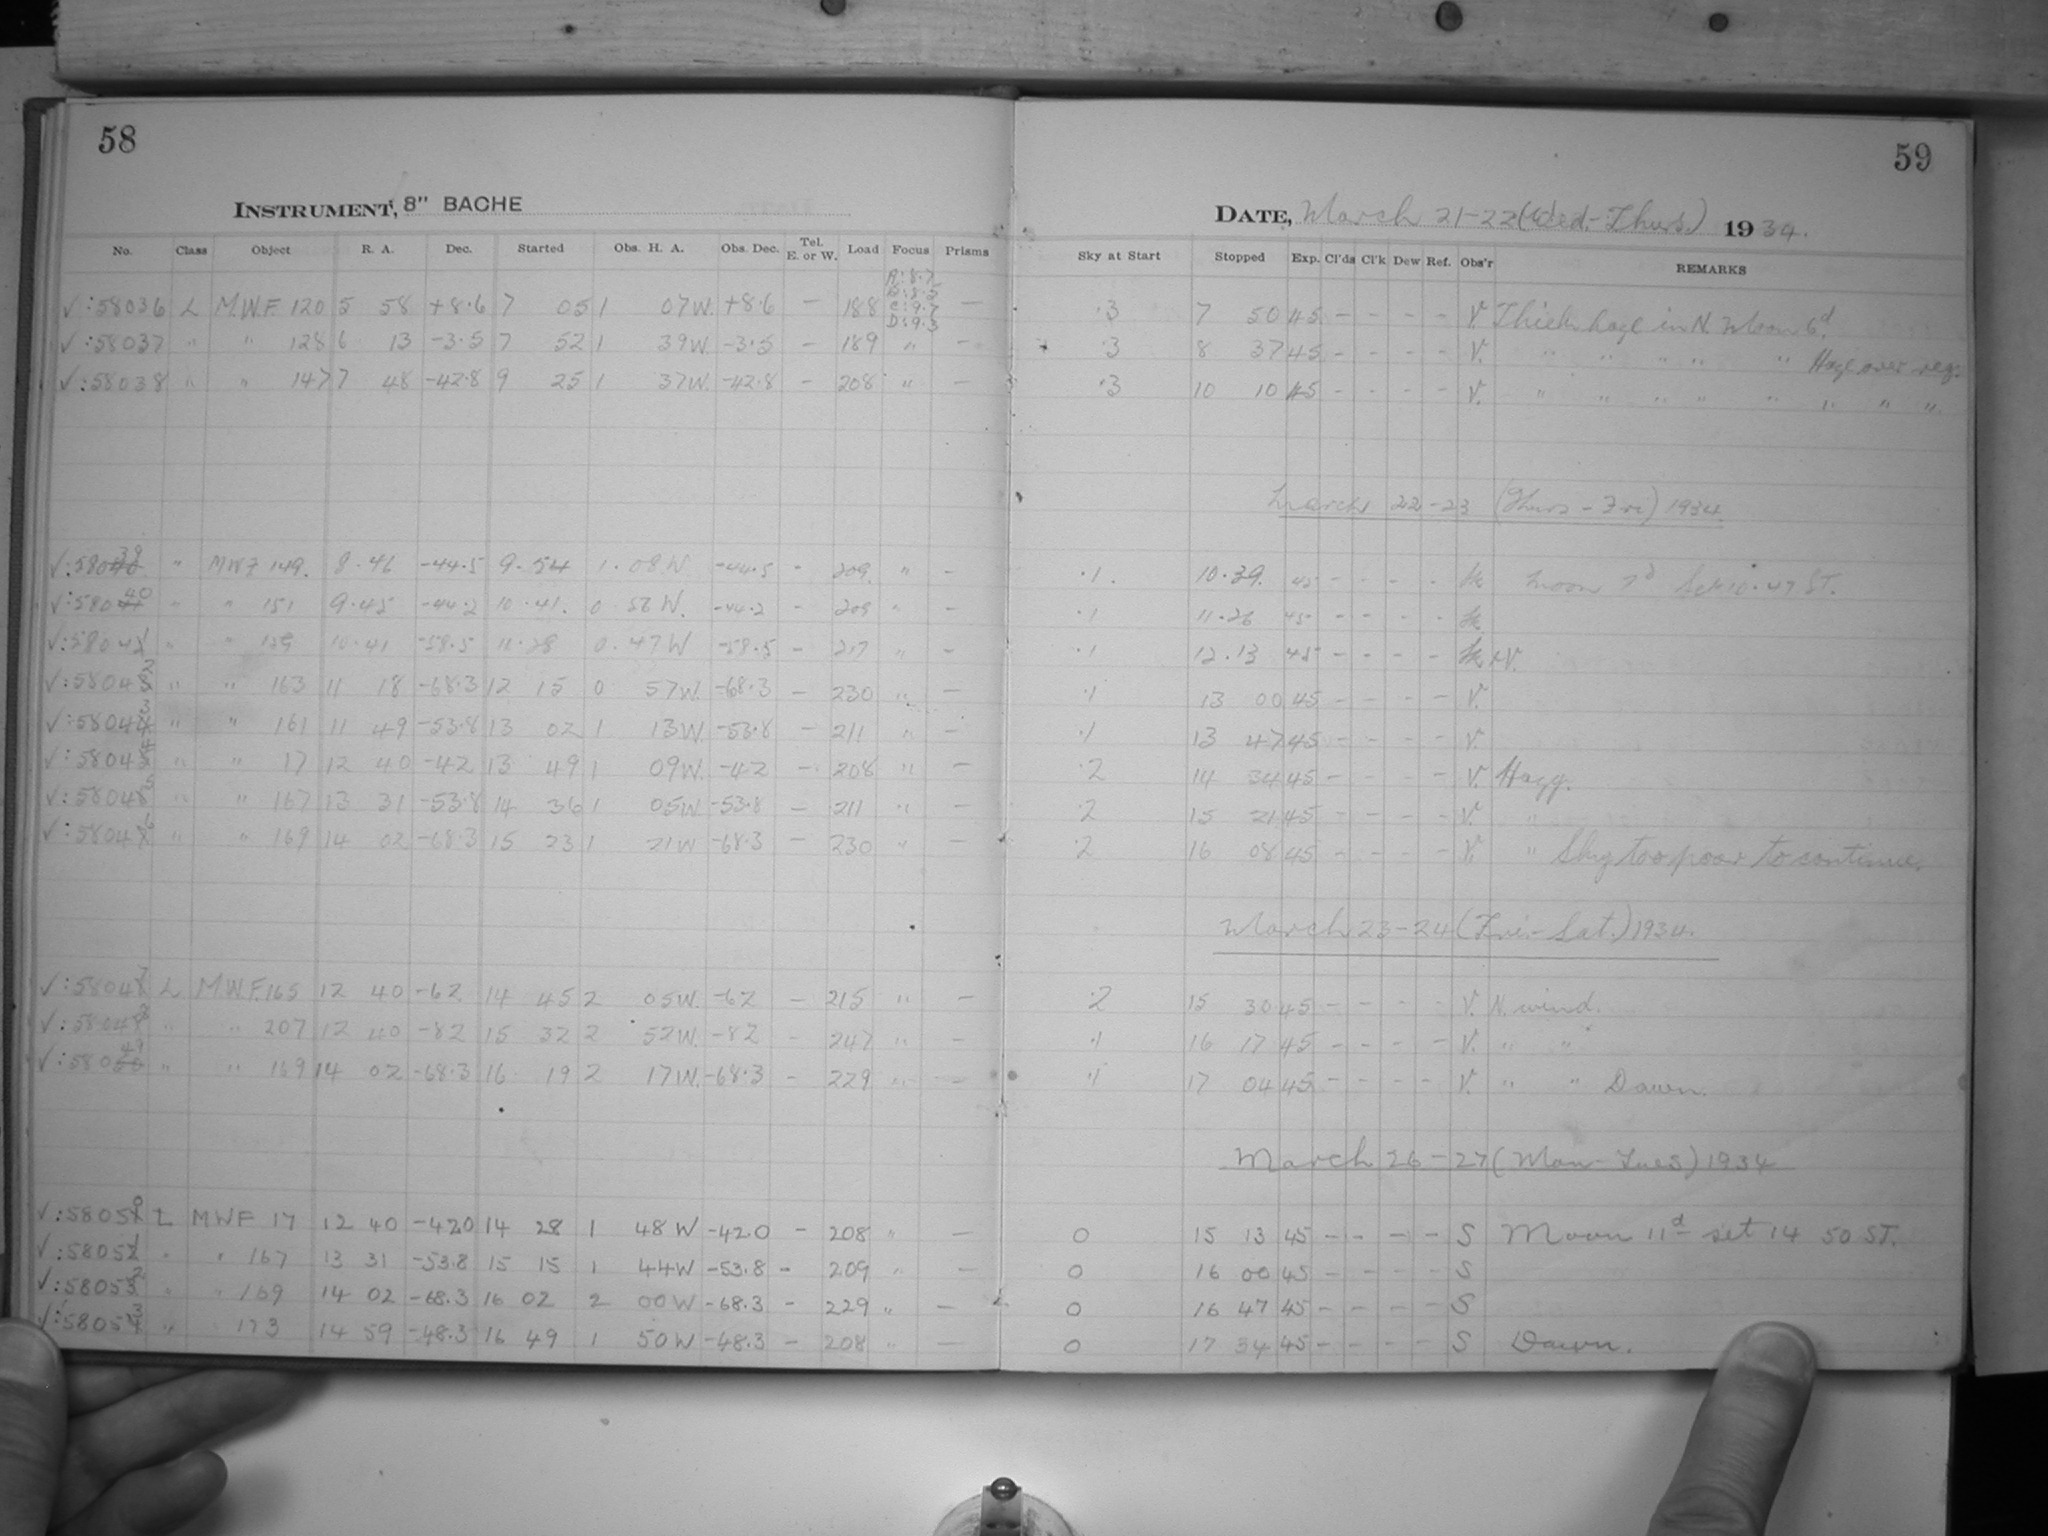 58
INSTRUMENT, 8" BACHE
No. Class Object R. A. Dec. Started Obs. H. A. Obs. Dec. Tel. E. or W. Load Focus Prisms
A:8.7
B:8.5
C:9.7
D:9.3
√:58036 L M.W.F. 120 5 58 +8.6 7 05 1 07W. +8.6 — 188 —
√:58037 " " 128 6 13 -3.5 7 52 1 39W. -3.5 — 189 " —
√:58038 " " 147 7 48 -42.8 9 25 1 37W. -42.8 — 208 " —
√:58039 " MWF 149. 8.46 -44.5 9.54 1.08.W. -44.5 - 209. " -
√:58040 " " 151 9.45 -44.2 10.41. 0 56 W. -44.2 - 209 " -
√:58041 " " 159 10.41 -58.5 11.28 0.47W -58.5 - 217 " -
√:58042 " " 163 11 18 -68.3 12 15 0 57W. -68.3 — 230 " —
√:58043 " " 161 11 49 -53.8 13 02 1 13W. -53.8 — 211 " —
√:58044 " " 17 12 40 -42 13 49 1 09W. -42 — 208 " —
√:58045 " " 167 13 31 -53.8 14 36 1 05W -53.8 — 211 " —
√:58046 " " 169 14 02 -68.3 15 23 1 21W -68.3 — 230 " —
√:58047 L M.W.F. 165 12 40 -62 14 45 2 05W. -62 — 215 " —
√:58048 " " 207 12 40 -82 15 32 2 52W. -82 - 247 " —
√:58049 " " 169 14 02 -68.3 16 19 2 17W. -68.3 - 229 " —
√:58050 L MWF 17 12 40 -42.0 14 28 1 48W -42.0 - 208 " —
√:58051 " " 167 13 31 -53.8 15 15 1 44W -53.8 - 209 " —
√:58052 " " 169 14 02 -68.3 16 02 2 00W -68.3 - 229 " —
√:58053 " 173 14 59 -48.3 16 49 1 50W -48.3 - 208 " —
59
DATE, March 21-22 (Wed.-Thurs.) 1934.
Sky at Start Stopped Exp. Cl'ds Cl'k Dew Ref. Obs'r REMARKS
.3 7 50 45 - - - - V. Thick haze in N. Moon 6d.
.3 8 37 45 - - - - V. " " " " " Haze over reg.
.3 10 10 45 - - - - V. " " " " " " " "
March 22-23 (Thurs - Fri) 1934
.1. 10.39. 45 - - - - Moon 7d Set 10.47 ST.
.1 11.26 45 - - - -
.1 12.13 45 - - - - +V.
.1 13 00 45 - - - - V.
.1 13 47 45 - - - - V.
.2 14 34 45 - - - - V. Hazy.
.2 15 21 45 - - - - V. "
.2 16 08 45 - - - - V. " Sky too poor to continue.
March 23-24 (Fri.-Sat.) 1934.
.2 15 30 45 - - - - V. N. wind.
.1 16 17 45 - - - - V. " "
.1 17 04 45 - - - - V. " " Dawn.
March 26-27 (Mon-Tues) 1934
0 15 13 45 - - - - S Moon 11d set 14 50 ST.
0 16 00 45 - - - - S
0 16 47 45 - - - - S
0 17 34 45 - - - - S Dawn.